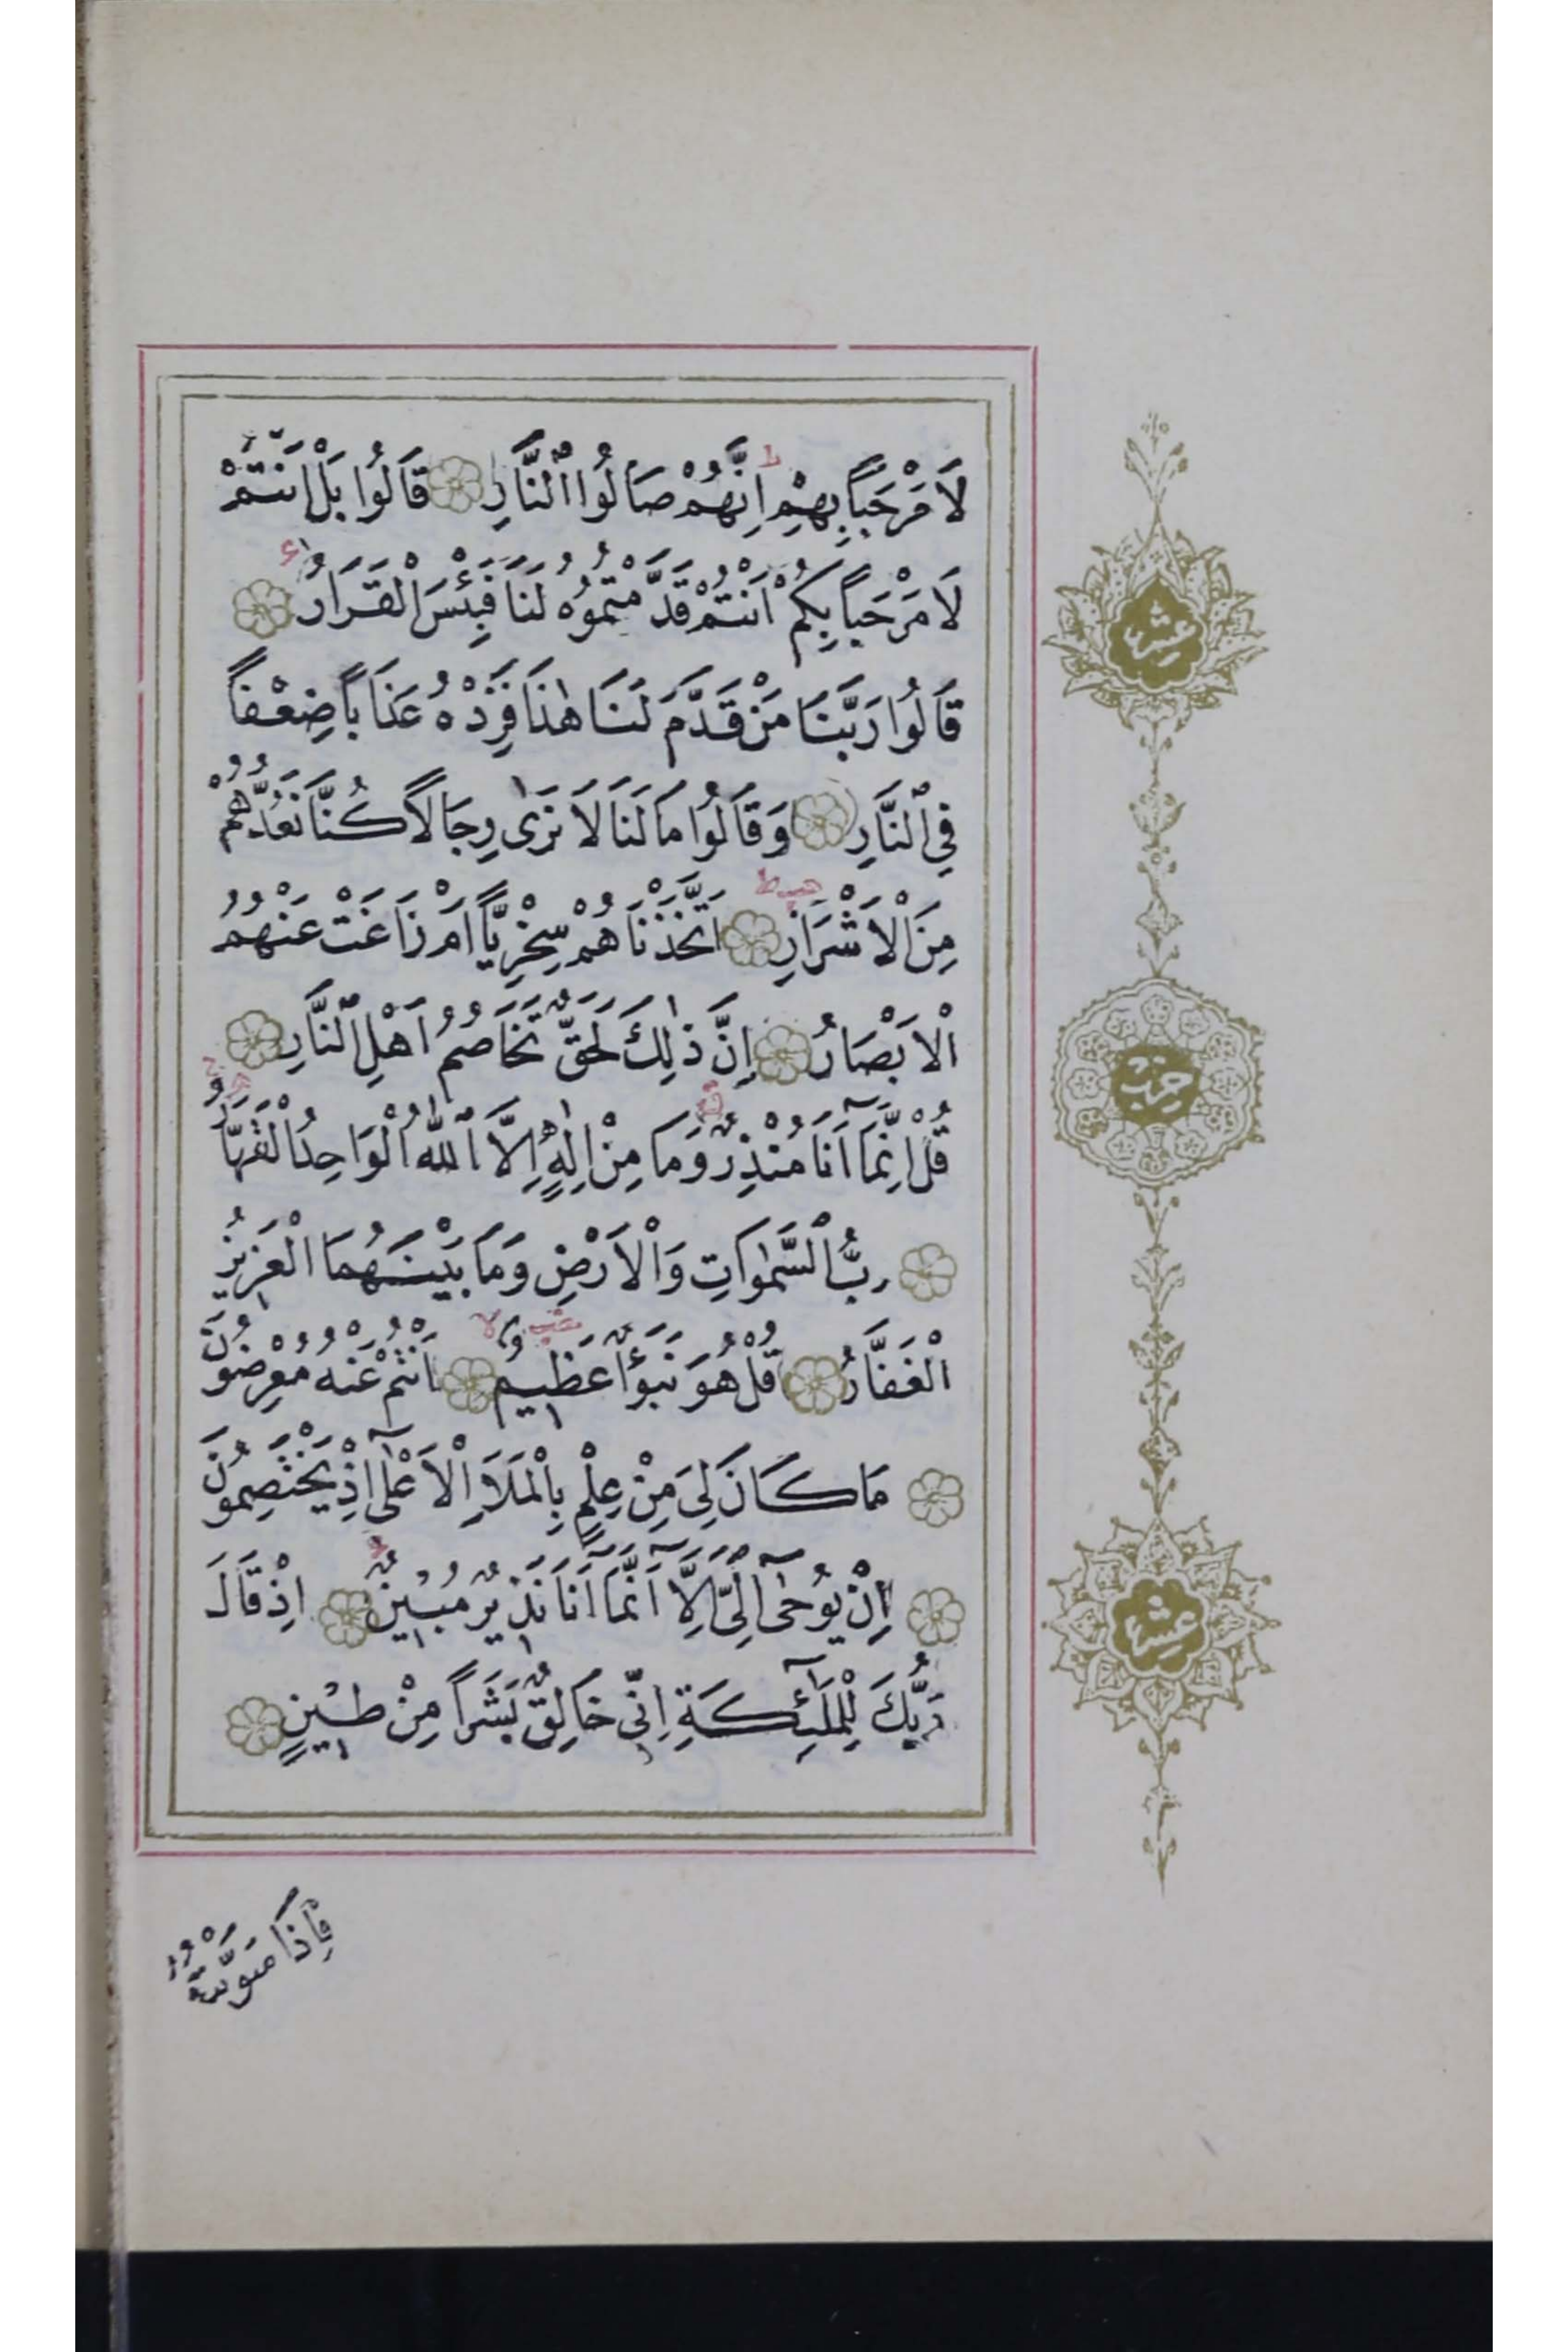 لَا مَرْحَبًا بِهِمْ اِنَّهُمْ صَالُوا النَّارِ قَالُوا بَلْ اَنْتُمْ
لَا مَرْحَبًا بِكُمْ اَنْتُمْ قَدَّمْتُمُوهُ لَنَا فَبِئْسَ الْقَرَارُ
قَالُوا رَبَّنَا مَنْ قَدَّمَ لَنَا هٰذَا فَزِدْهُ عَذَابًا ضِعْفًا
فِي النَّارِ وَقَالُوا مَا لَنَا لَا نَرٰى رِجَالًا كُنَّا نَعُدُّهُمْ
مِنَ الْاَشْرَارِ اَتَّخَذْنَاهُمْ سِخْرِيًّا اَمْ زَاغَتْ عَنْهُمُ
الْاَبْصَارُ اِنَّ ذٰلِكَ لَحَقٌّ تَخَاصُمُ اَهْلِ النَّارِ
قُلْ اِنَّمَٓا اَنَا مُنْذِرٌ وَمَا مِنْ اِلٰهٍ اِلَّا اللّٰهُ الْوَاحِدُ الْقَهَّارُ
رَبُّ السَّمٰوَاتِ وَالْاَرْضِ وَمَا بَيْنَهُمَا الْعَزِيزُ
الْغَفَّارُ قُلْ هُوَ نَبَؤٌا عَظِيمٌ اَنْتُمْ عَنْهُ مُعْرِضُونَ
مَا كَانَ لِيَ مِنْ عِلْمٍ بِالْمَلَاِ الْاَعْلٰٓى اِذْ يَخْتَصِمُونَ
اِنْ يُوحٰٓى اِلَيَّ اِلَّٓا اَنَّمَٓا اَنَا نَذِيرٌ مُبِينٌ اِذْ قَالَ
رَبُّكَ لِلْمَلٰٓئِكَةِ اِنِّي خَالِقٌ بَشَرًا مِنْ طِينٍ
فَاِذَا سَوَّيْتُهُ
عشر
حزب
عشر